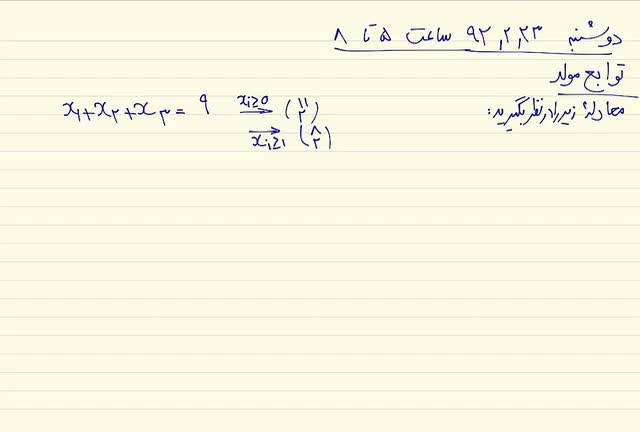 دوشنبه ۹۲,۲,۲۳ ساعت ۵ تا ۸
توابع مولد
معادلهٔ زیر را در نظر بگیرید: x₁+x₂+x₃ = ۹ \xrightarrow{xᵢ≥0} \binom{۱۱}{۲}
\xrightarrow[xᵢ≥1]{} \binom{۸}{۲}